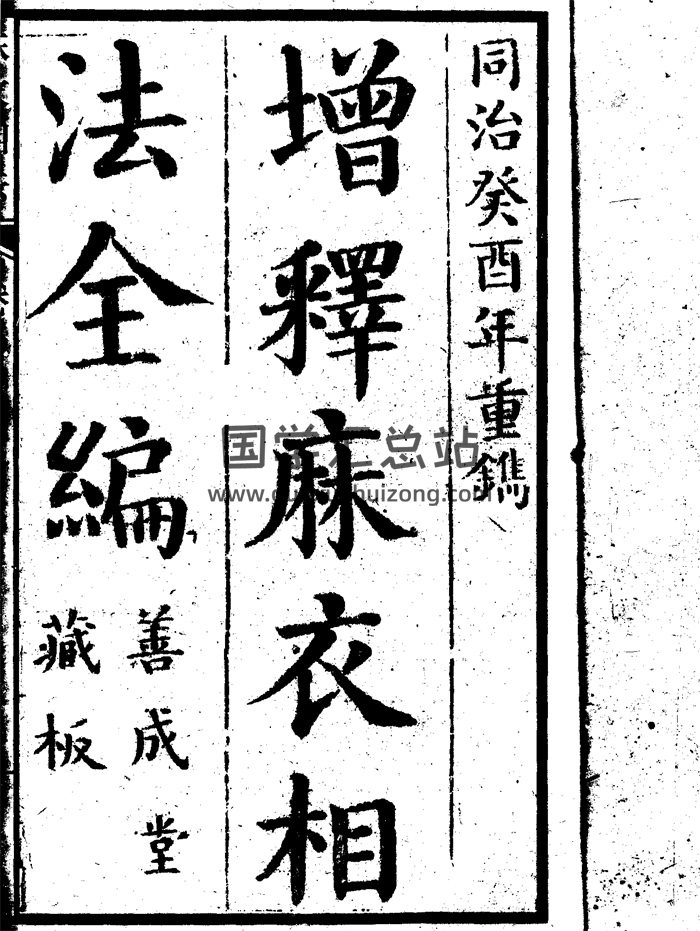 同治癸酉年重鐫
增釋麻衣相
法全編
善成堂
藏板
国学 总站
www.gu huizong.com